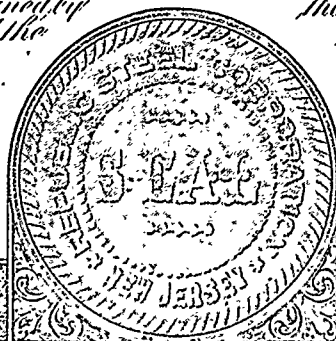 the
REPUBLIC STEEL CORPORATION
SEAL
NEW JERSEY